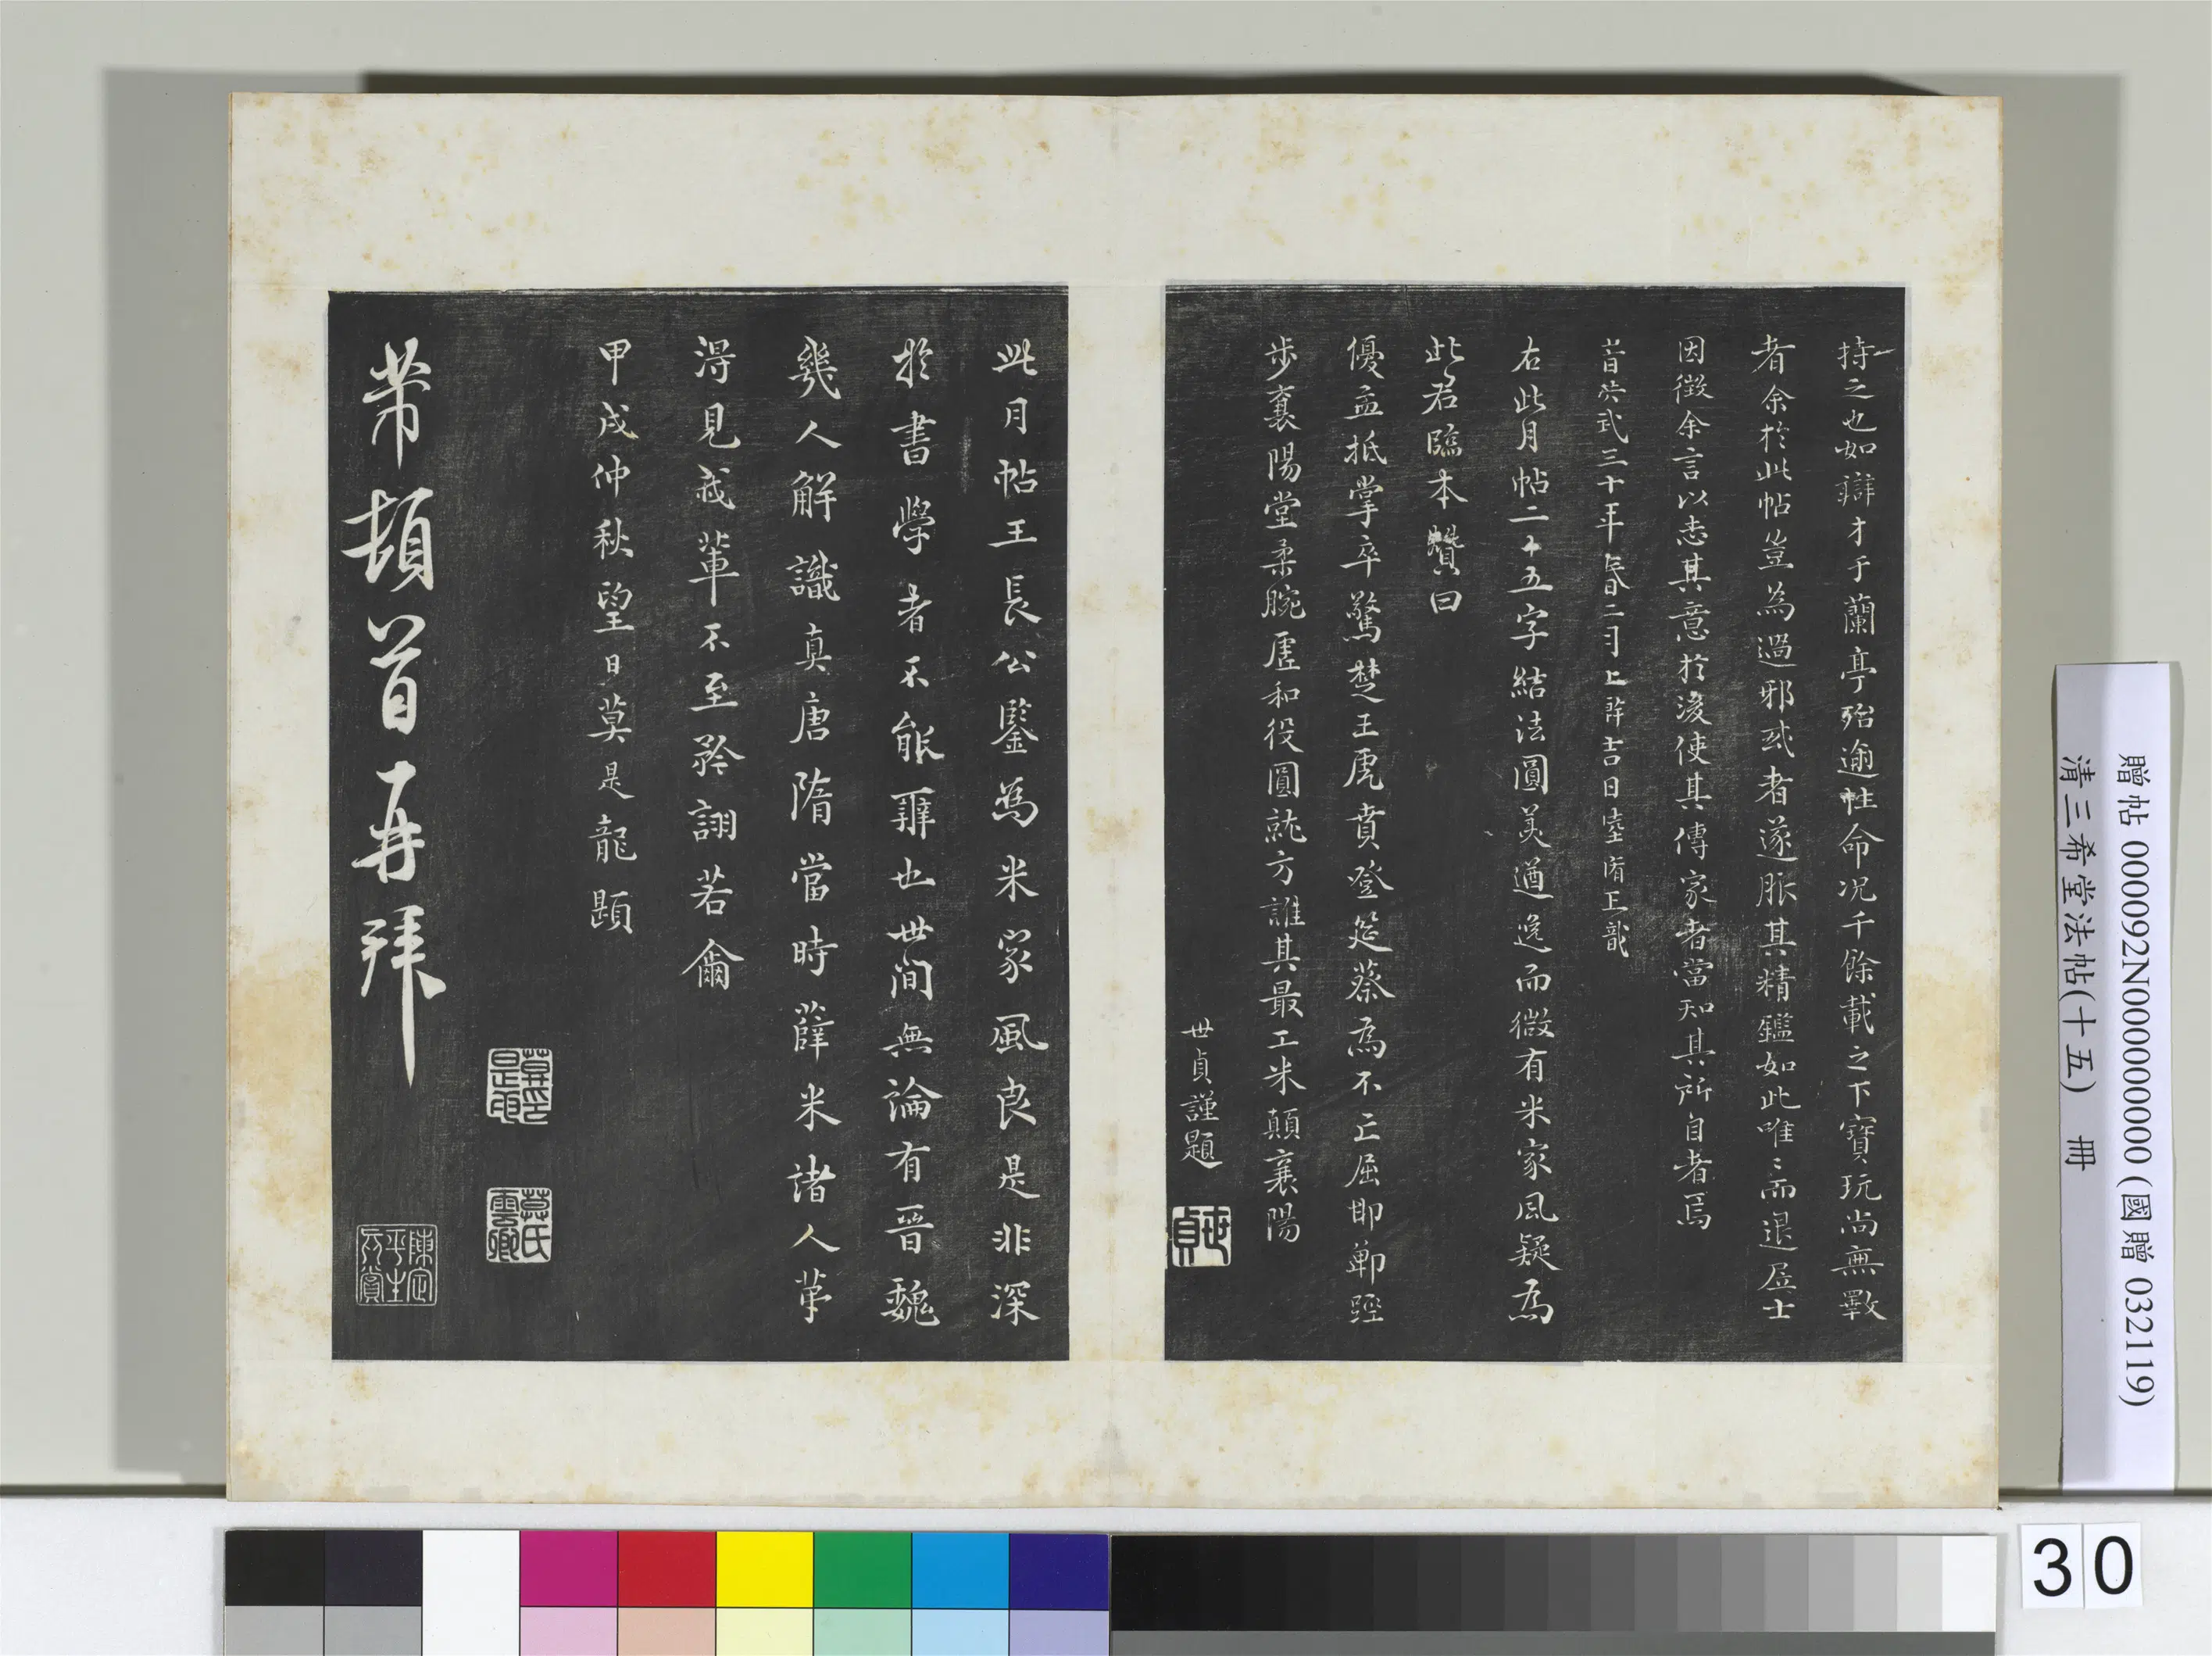 持之也如辯才于蘭亭殆逾性命况千餘載之下寶玩尚無斁
者余於此帖豈為過邪或者遂脈其精鑑如此唯〻而退居士
因徵余言以志其意於後使其傳家者當知其所自者焉
昔洪武三十年春二月上澣吉日
右此月帖二十五字結法圓美遒逸而微有米家風疑為
此君臨本贊曰
優孟抵掌卒驚楚王虎賁登筵蔡為不亡屈即鄲踁
步襄陽堂柔腕虛和役圓就方誰其最工米顛襄陽
世貞謹題
世貞
此月帖王長公鑒為米家風良是非深
於書學者不能辨也世間無論有晉魏
幾人解識真唐隋當時薛米諸人筆
得見我輩不至矜詡若爾
甲戌仲秋望日莫是龍題
莫氏雲卿
芾頓首再拜
陳定平生真賞
贈帖 000092N000000000 (國贈 032119)
清三希堂法帖(十五) 冊
30